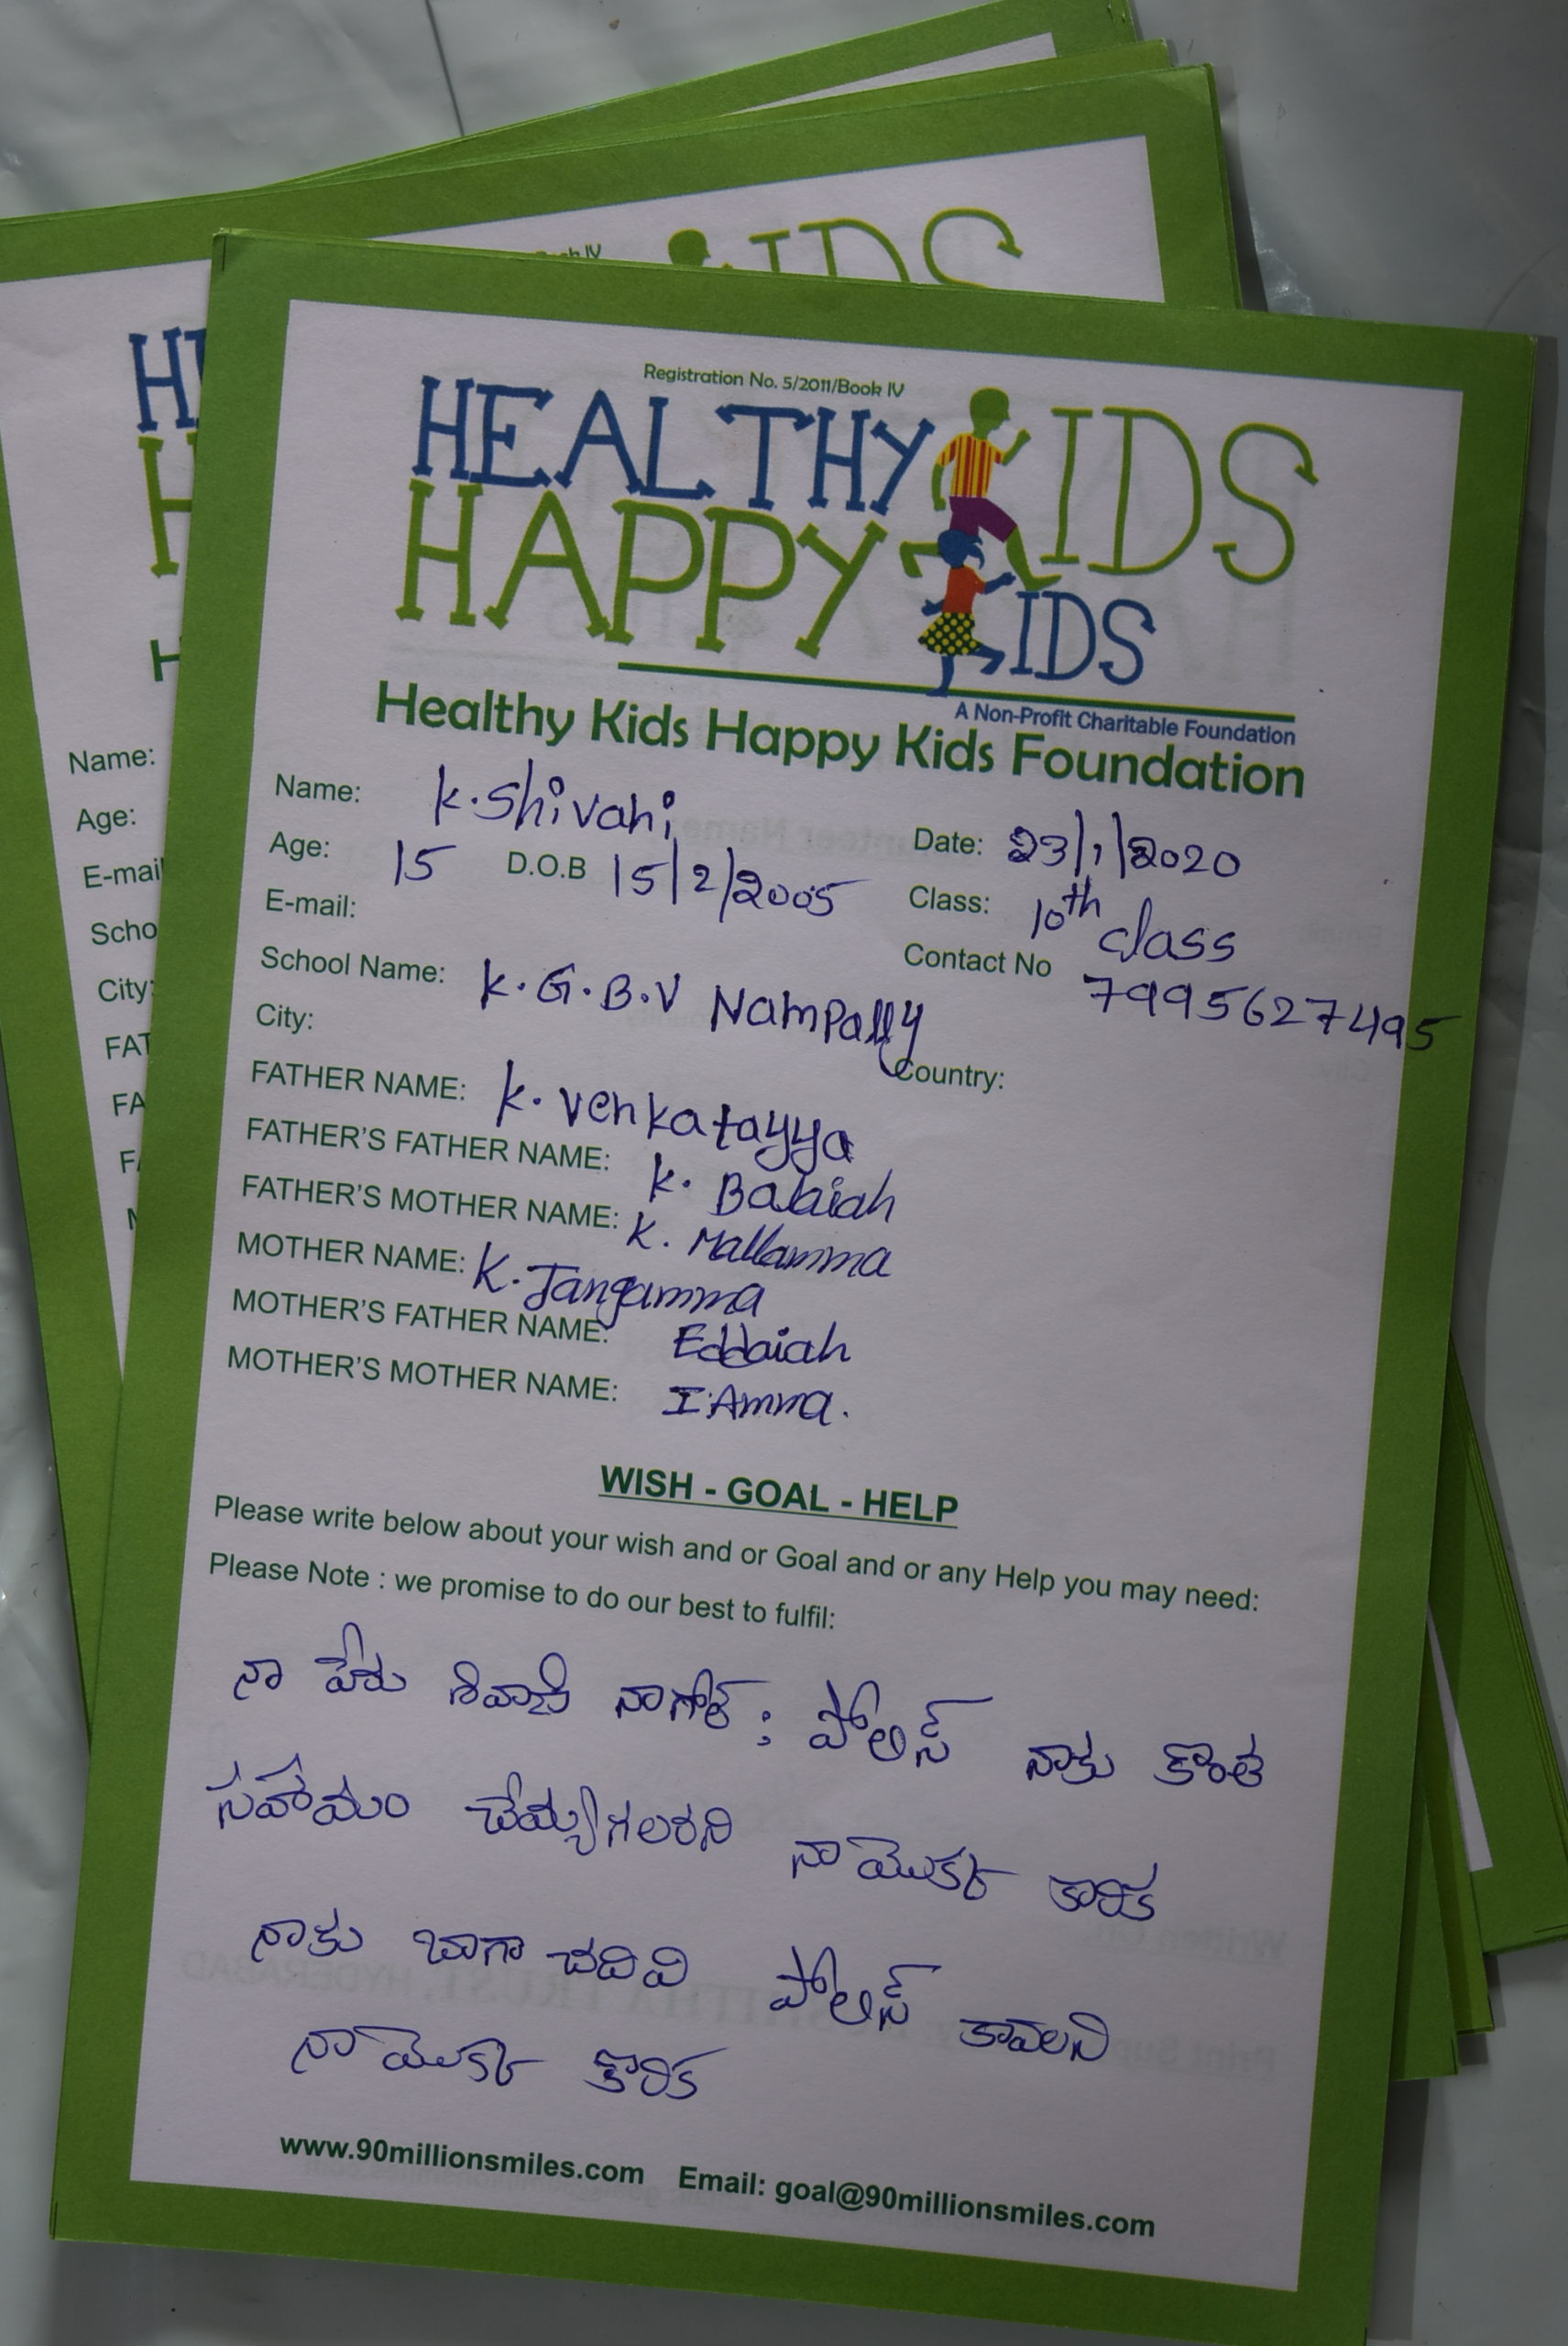 Book IV
IDS
Registration No. 5/2011/Book IV
HEALTHY KIDS
HAPPY KIDS
A Non-Profit Charitable Foundation
Healthy Kids Happy Kids Foundation
Name: K. Shivani Date: 23/1/2020
Age: 15 D.O.B 15/2/2005 Class: 10th class
E-mail: Contact No 7995627495
School Name: K.G.B.V Nampally
City: Country:
FATHER NAME: K. Venkatayya
FATHER'S FATHER NAME: K. Balaiah
FATHER'S MOTHER NAME: K. Mallamma
MOTHER NAME: K. Jangamma
MOTHER'S FATHER NAME: Eddaiah
MOTHER'S MOTHER NAME: I. Amma.
WISH - GOAL - HELP
Please write below about your wish and or Goal and or any Help you may need:
Please Note : we promise to do our best to fulfil:
నా పేరు శివాని నాగోల్ : పోలిస్ నాకు కొంత
సహాయం చేయ్యగలరని నా యొక్క కారిక
నాకు బాగా చదివి పోలిస్ కావలని
నా యొక్క కొరిక
www.90millionsmiles.com Email: goal@90millionsmiles.com
Name:
Age:
E-mail
Scho
City:
FAT
FA